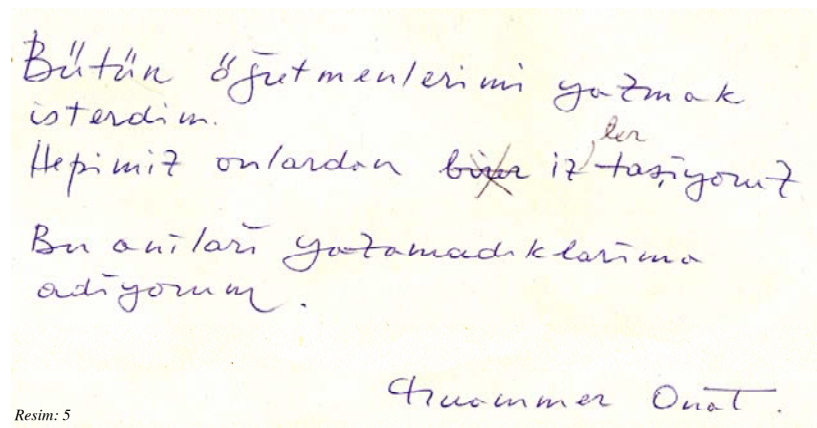 Bütün öğretmenlerimi yazmak
isterdim.
Hepimiz onlardan izler taşıyoruz
Bu anıları yazamadıklarıma
adıyorum.
Muammer Onat.
Resim: 5